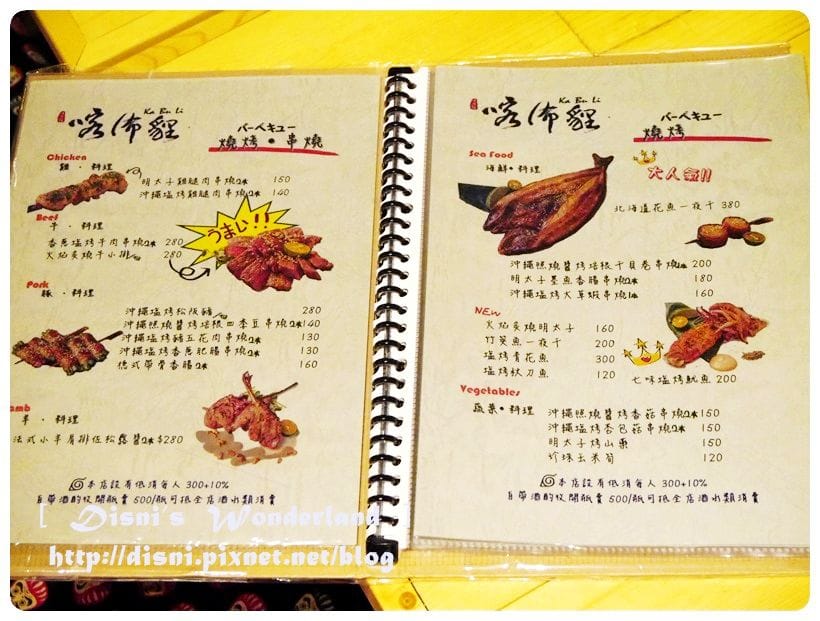 喀佈貍
Ka Bu Li
バーベキュー
燒烤·串燒
Chicken
雞·料理
明太子雞腿肉串燒2串 150
沖繩塩烤雞腿肉串燒2串 140
Beef
牛·料理
香蔥塩烤牛肉串燒2串 280
火焰炙燒牛小排 280
うまい!!
Pork
豚·料理
沖繩塩烤松板豬 280
沖繩照燒醬烤培根四季豆串燒2串 140
沖繩塩烤豬五花肉串燒2串 130
沖繩塩烤香蔥肥腸串燒2串 130
德式帶骨香腸 160
amb
羊·料理
法式小羊肩排佐松露醬2串 $280
本店設有低消每人 300+10%
自帶酒酌收開瓶費 500/瓶可抵全店酒水類消費
喀佈貍
Ka Bu Li
バーベキュー
燒烤
Sea Food
海鮮·料理
大人氣!!
北海道花魚一夜干 380
沖繩照燒醬烤培根干貝卷串燒2串 200
明太子墨魚香腸串燒2串 180
沖繩塩烤大草蝦串燒1串 160
NEw
火焰炙燒明太子 160
竹筴魚一夜干 200
塩烤青花魚 300
塩烤秋刀魚 120
七味塩烤魷魚 200
Vegetables
蔬菜·料理
沖繩照燒醬烤香菇串燒2串 150
沖繩塩烤杏包菇串燒2串 150
明太子烤山藥 150
珍珠玉米筍 120
本店設有低消每人 300+10%
自帶酒酌收開瓶費 500/瓶可抵全店酒水類消費
[ Disni's Wonderland ]
http://disni.pixnet.net/blog